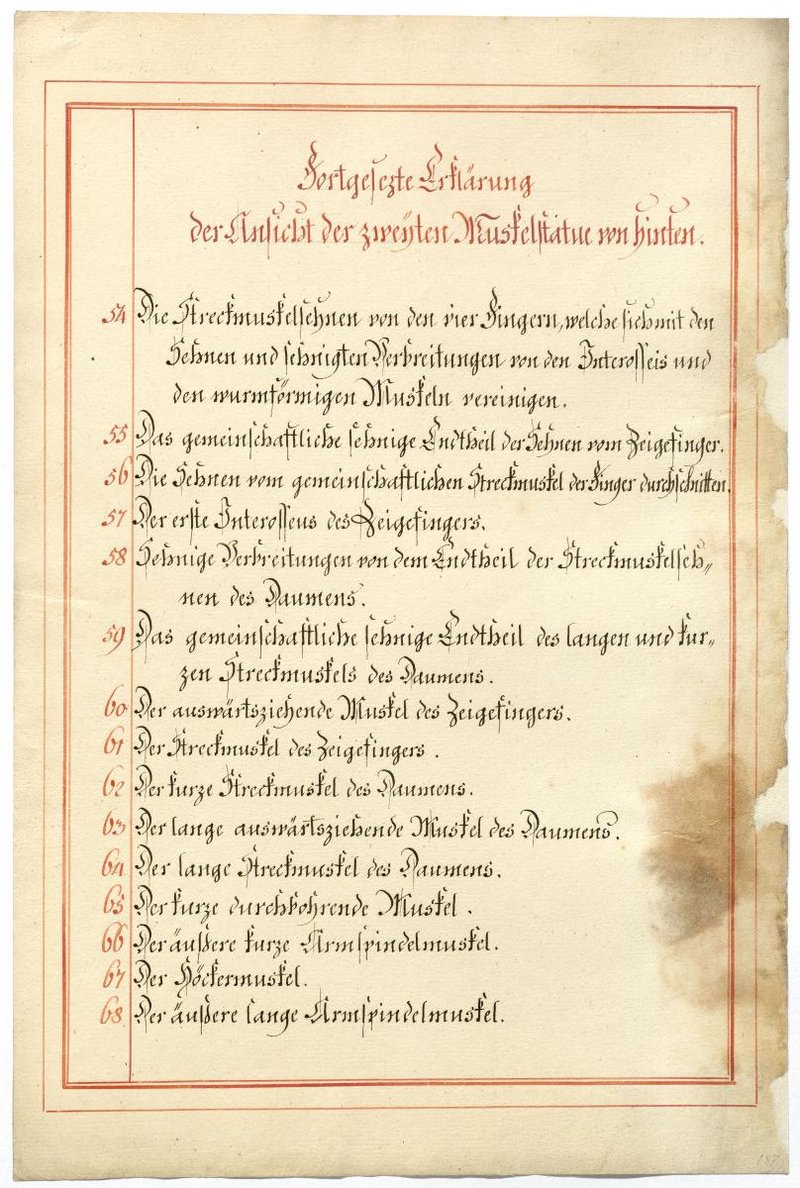 Fortgesezte Erklärung
der Ansicht der zweÿten Muskelstatue von hinten.
54 Die Streckmuskelsehnen von den vier Fingern, welche sich mit den
Sehnen und sehnigten Verbreitungen von den Interosseis und
den wurmförmigen Muskeln vereinigen.
55 Das gemeinschaftliche sehnige Endtheil der Sehnen vom Zeigefinger.
56 Die Sehnen vom gemeinschaftlichen Streckmuskel der Finger durchschnitten.
57 Der erste Interosseus des Zeigefingers.
58 Sehnige Verbreitungen von dem Endtheil der Streckmuskelseh„
nen des Daumens.
59 Das gemeinschaftliche sehnige Endtheil des langen und kur„
zen Streckmuskels des Daumens.
60 Der auswärtsziehende Muskel des Zeigefingers.
61 Der Streckmuskel des Zeigefingers.
62 Der kurze Streckmuskel des Daumens.
63 Der lange auswärtsziehende Muskel des Daumens.
64 Der lange Streckmuskel des Daumens.
65 Der kurze durchbohrende Muskel.
66 Der äußere kurze Armspindelmuskel.
67 Der Höckermuskel.
68 Der äußere lange Armspindelmuskel.